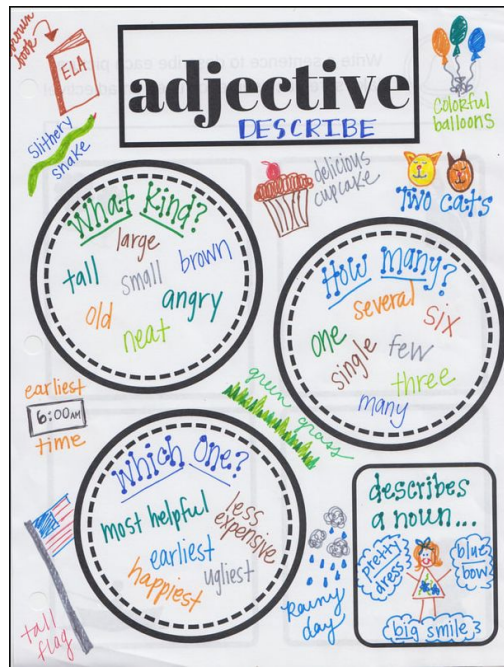 brown
book
ELA
adjective
DESCRIBE
colorful
balloons
slithery
snake
delicious
cupcake
Two cats
What Kind?
large
tall
small
brown
old
angry
neat
How many?
several
one
six
single
few
three
many
green grass
earliest
6:00AM
time
Which One?
most helpful
less
expensive
earliest
happiest
ugliest
Rainy
day
tall
flag
describes
a noun...
pretty
dress
blue
bow
big smile